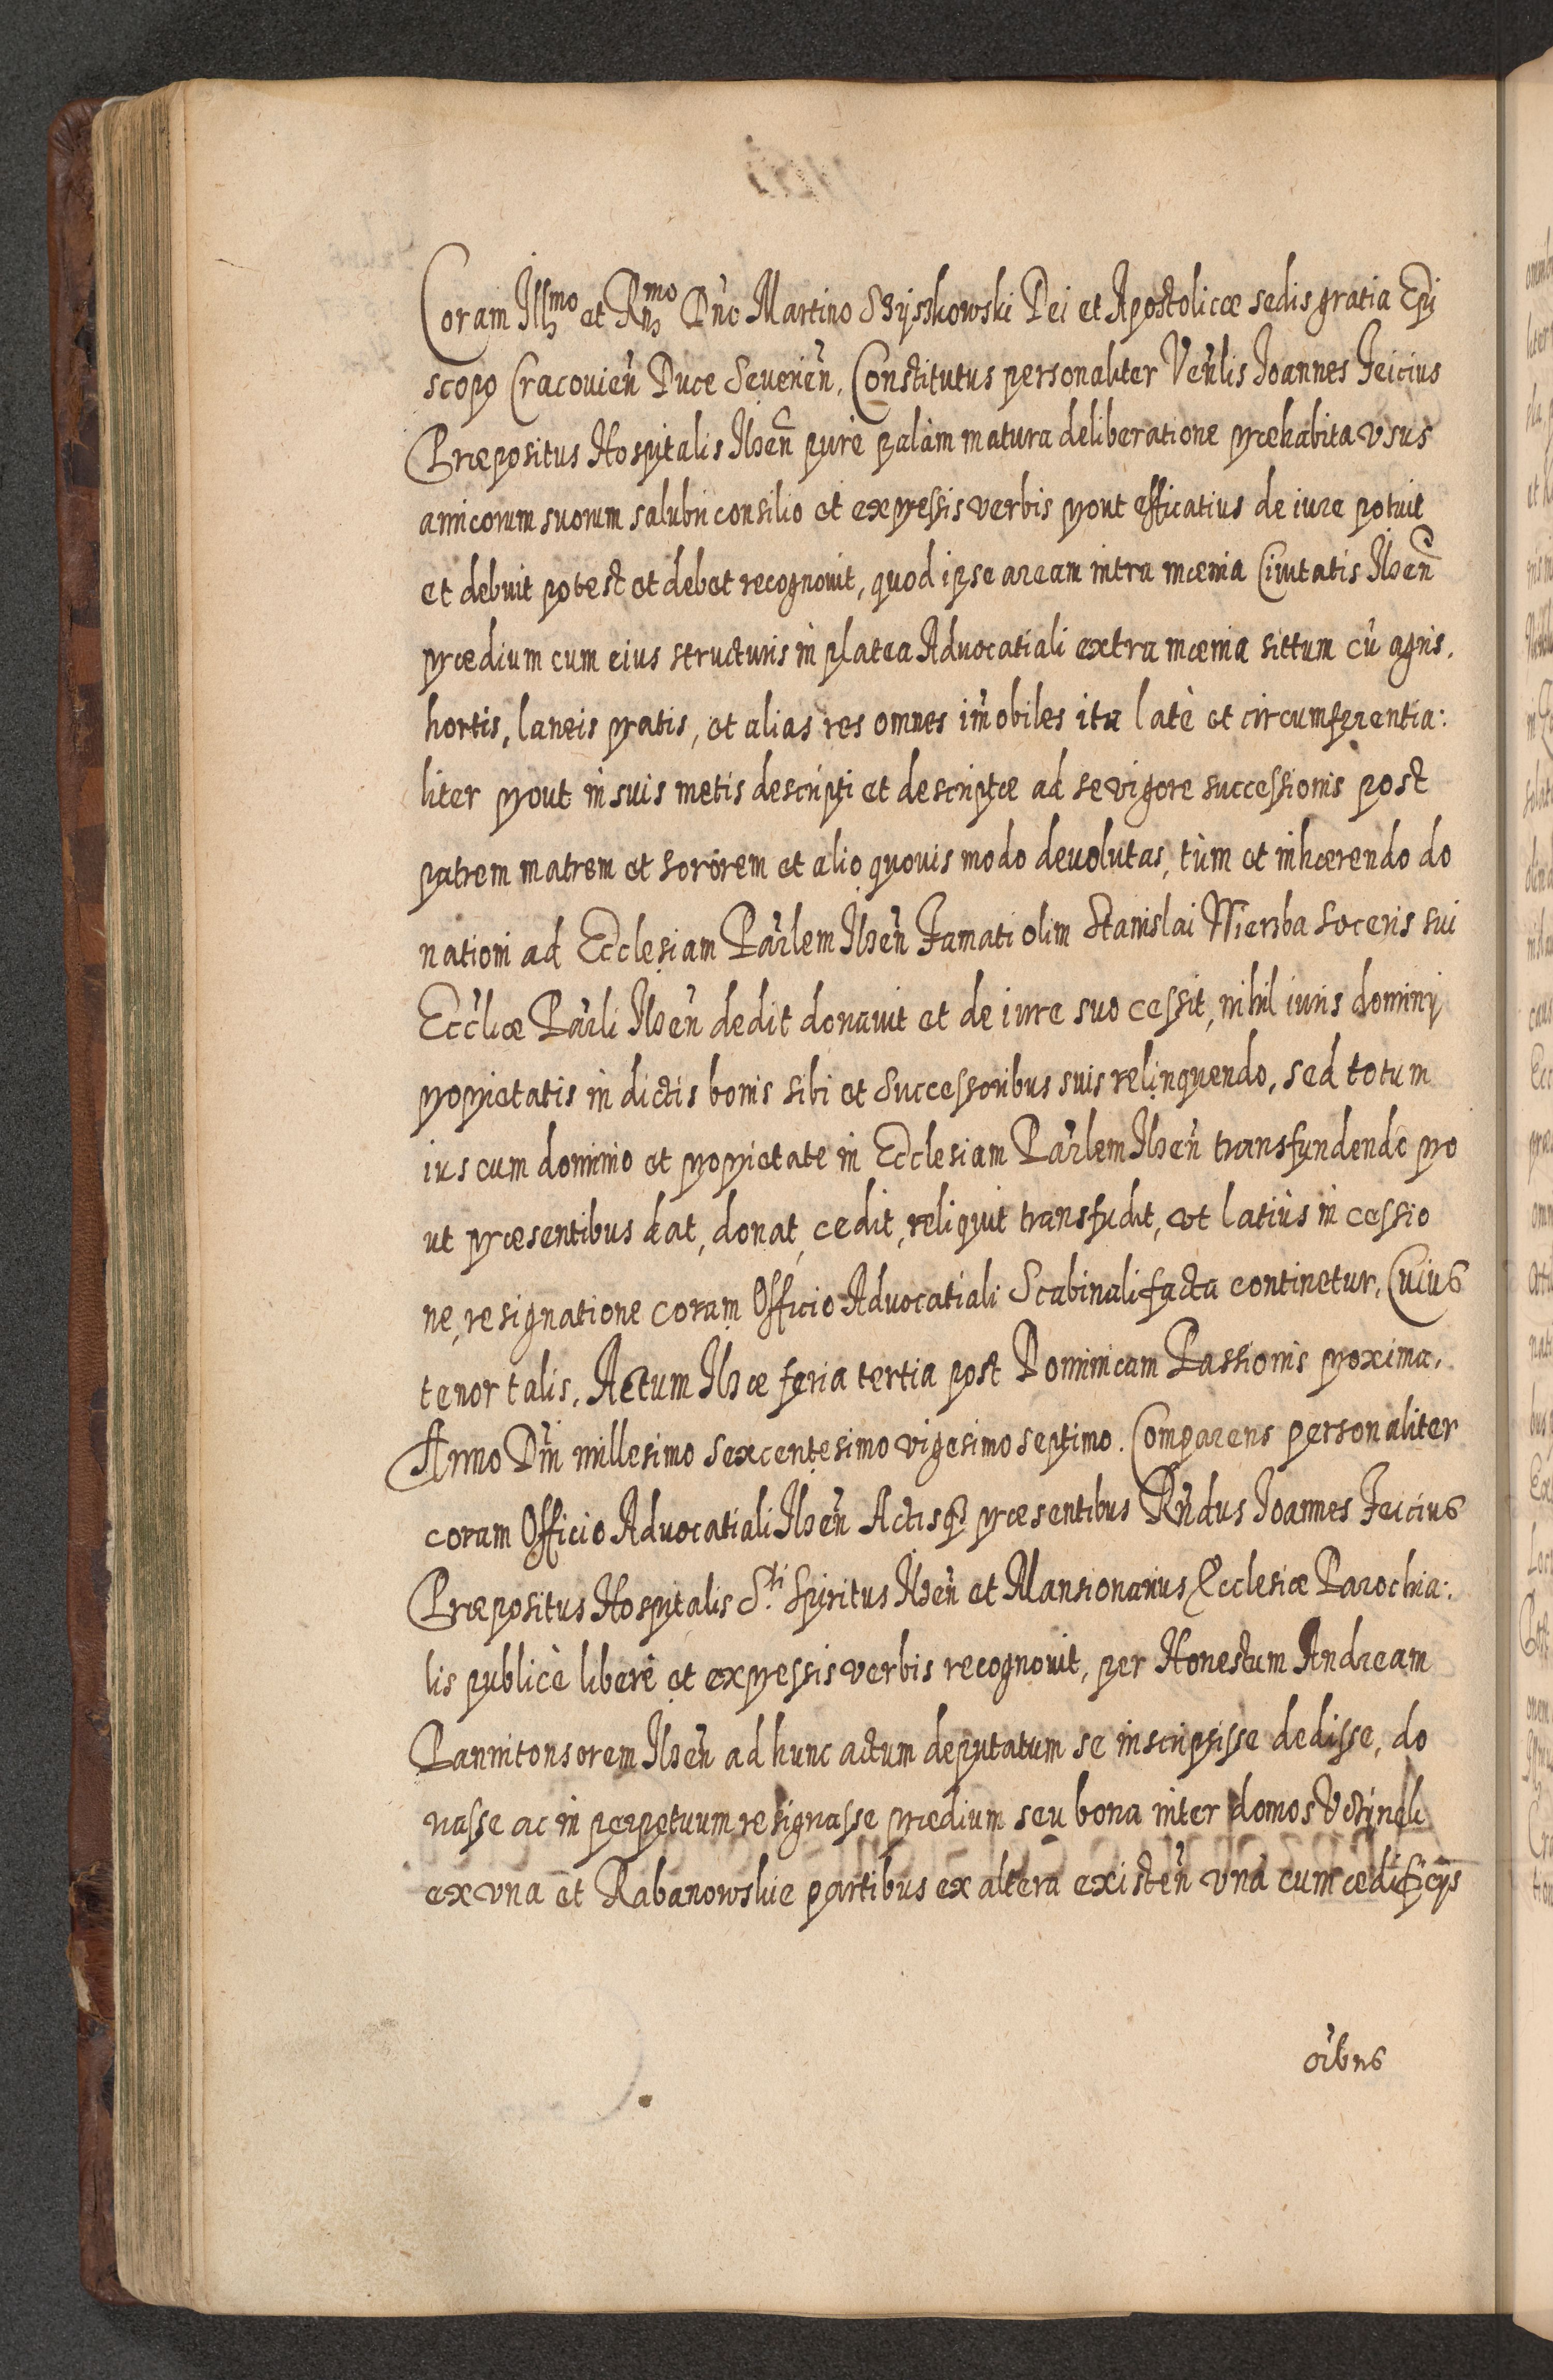 Coram Illmo et Rndmo Dno Martino Szyszkowski Dei et Apostolicæ sedis gratia Epi
scopo Cracouień Duce Seuerień, Constitutus personaliter Veńlis Ioannes Feicius
Præpositus Hospitalis Ilzeń purè palàm matura deliberatione præhabita vsus
amicorum suorum salubri consilio et expressis verbis prout efficatius de iure potuit
et debuit potest et debet recognouit, quod ipse aream intra mœnia Ciuitatis Ilzeń
prædium cum eius structuris in platea Aduocatiali extra mœnia sittum cū agris,
hortis, laneis pratis, et alias res omnes im̃obiles ita latè et circumferentia:
liter prout in suis metis descripti et descriptæ ad se vigore successionis post
patrem matrem et sororem et alio quouis modo deuolutas, tùm et inhærendo do
nationi ad Ecclesiam Paŕlem Ilzeń Famati olim Stanislai Wierzba Soceris sui
Eccĺiæ Paŕli Ilzeń dedit donauit et de iure suo cessit, nihil iuris dominÿ
proprietatis in dictis bonis sibi et Successoribus suis relinquendo, sed totum
ius cum dominio et proprietate in Ecclesiam Paŕlem Ilzeń transfundendo pro
ut præsentibus dat, donat, cedit, reliquit transfudit, vt latiùs in cessio
ne, resignatione coram Officio Aduocatiali Scabinali facta continetur, Cuius
tenor talis, Actum Ilzæ feria tertia post Dominicam Passionis proxima,
Anno Dñi millesimo Sexcentesimo vigesimo septimo. Comparens personaliter
coram Officio Aduocatiali Ilzeń Actisq; præsentibus Rńdus Ioannes Feicius
Præpositus Hospitalis S.ti Spiritus Ilzeń et Mansionarius Ecclesiæ Parochia:
lis publicè liberè et expressis verbis recognouit, per Honestum Andream
Pannitonsorem Ilzeń ad hunc actum deputatum se inscripsisse dedisse, do
nasse ac in perpetuum resignasse prædium seu bona inter domos
ex vna et Rabanowskie partibus ex altera existeń vnà cum ædificÿs
oĩbus